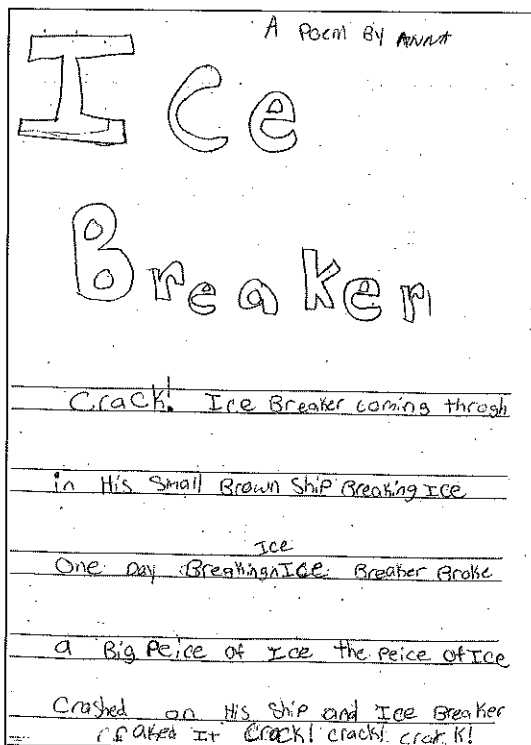 A Poem BY ANNA
Ice
Breaker
Crack! Ice Breaker coming throgh
in His Small Brown Ship Breaking Ice
Ice
One Day Breaking^ICE Breaker Broke
a Big Peice of Ice the Peice of Ice
Crashed on His Ship and Ice Breaker
craked It Crack! crack! crack!